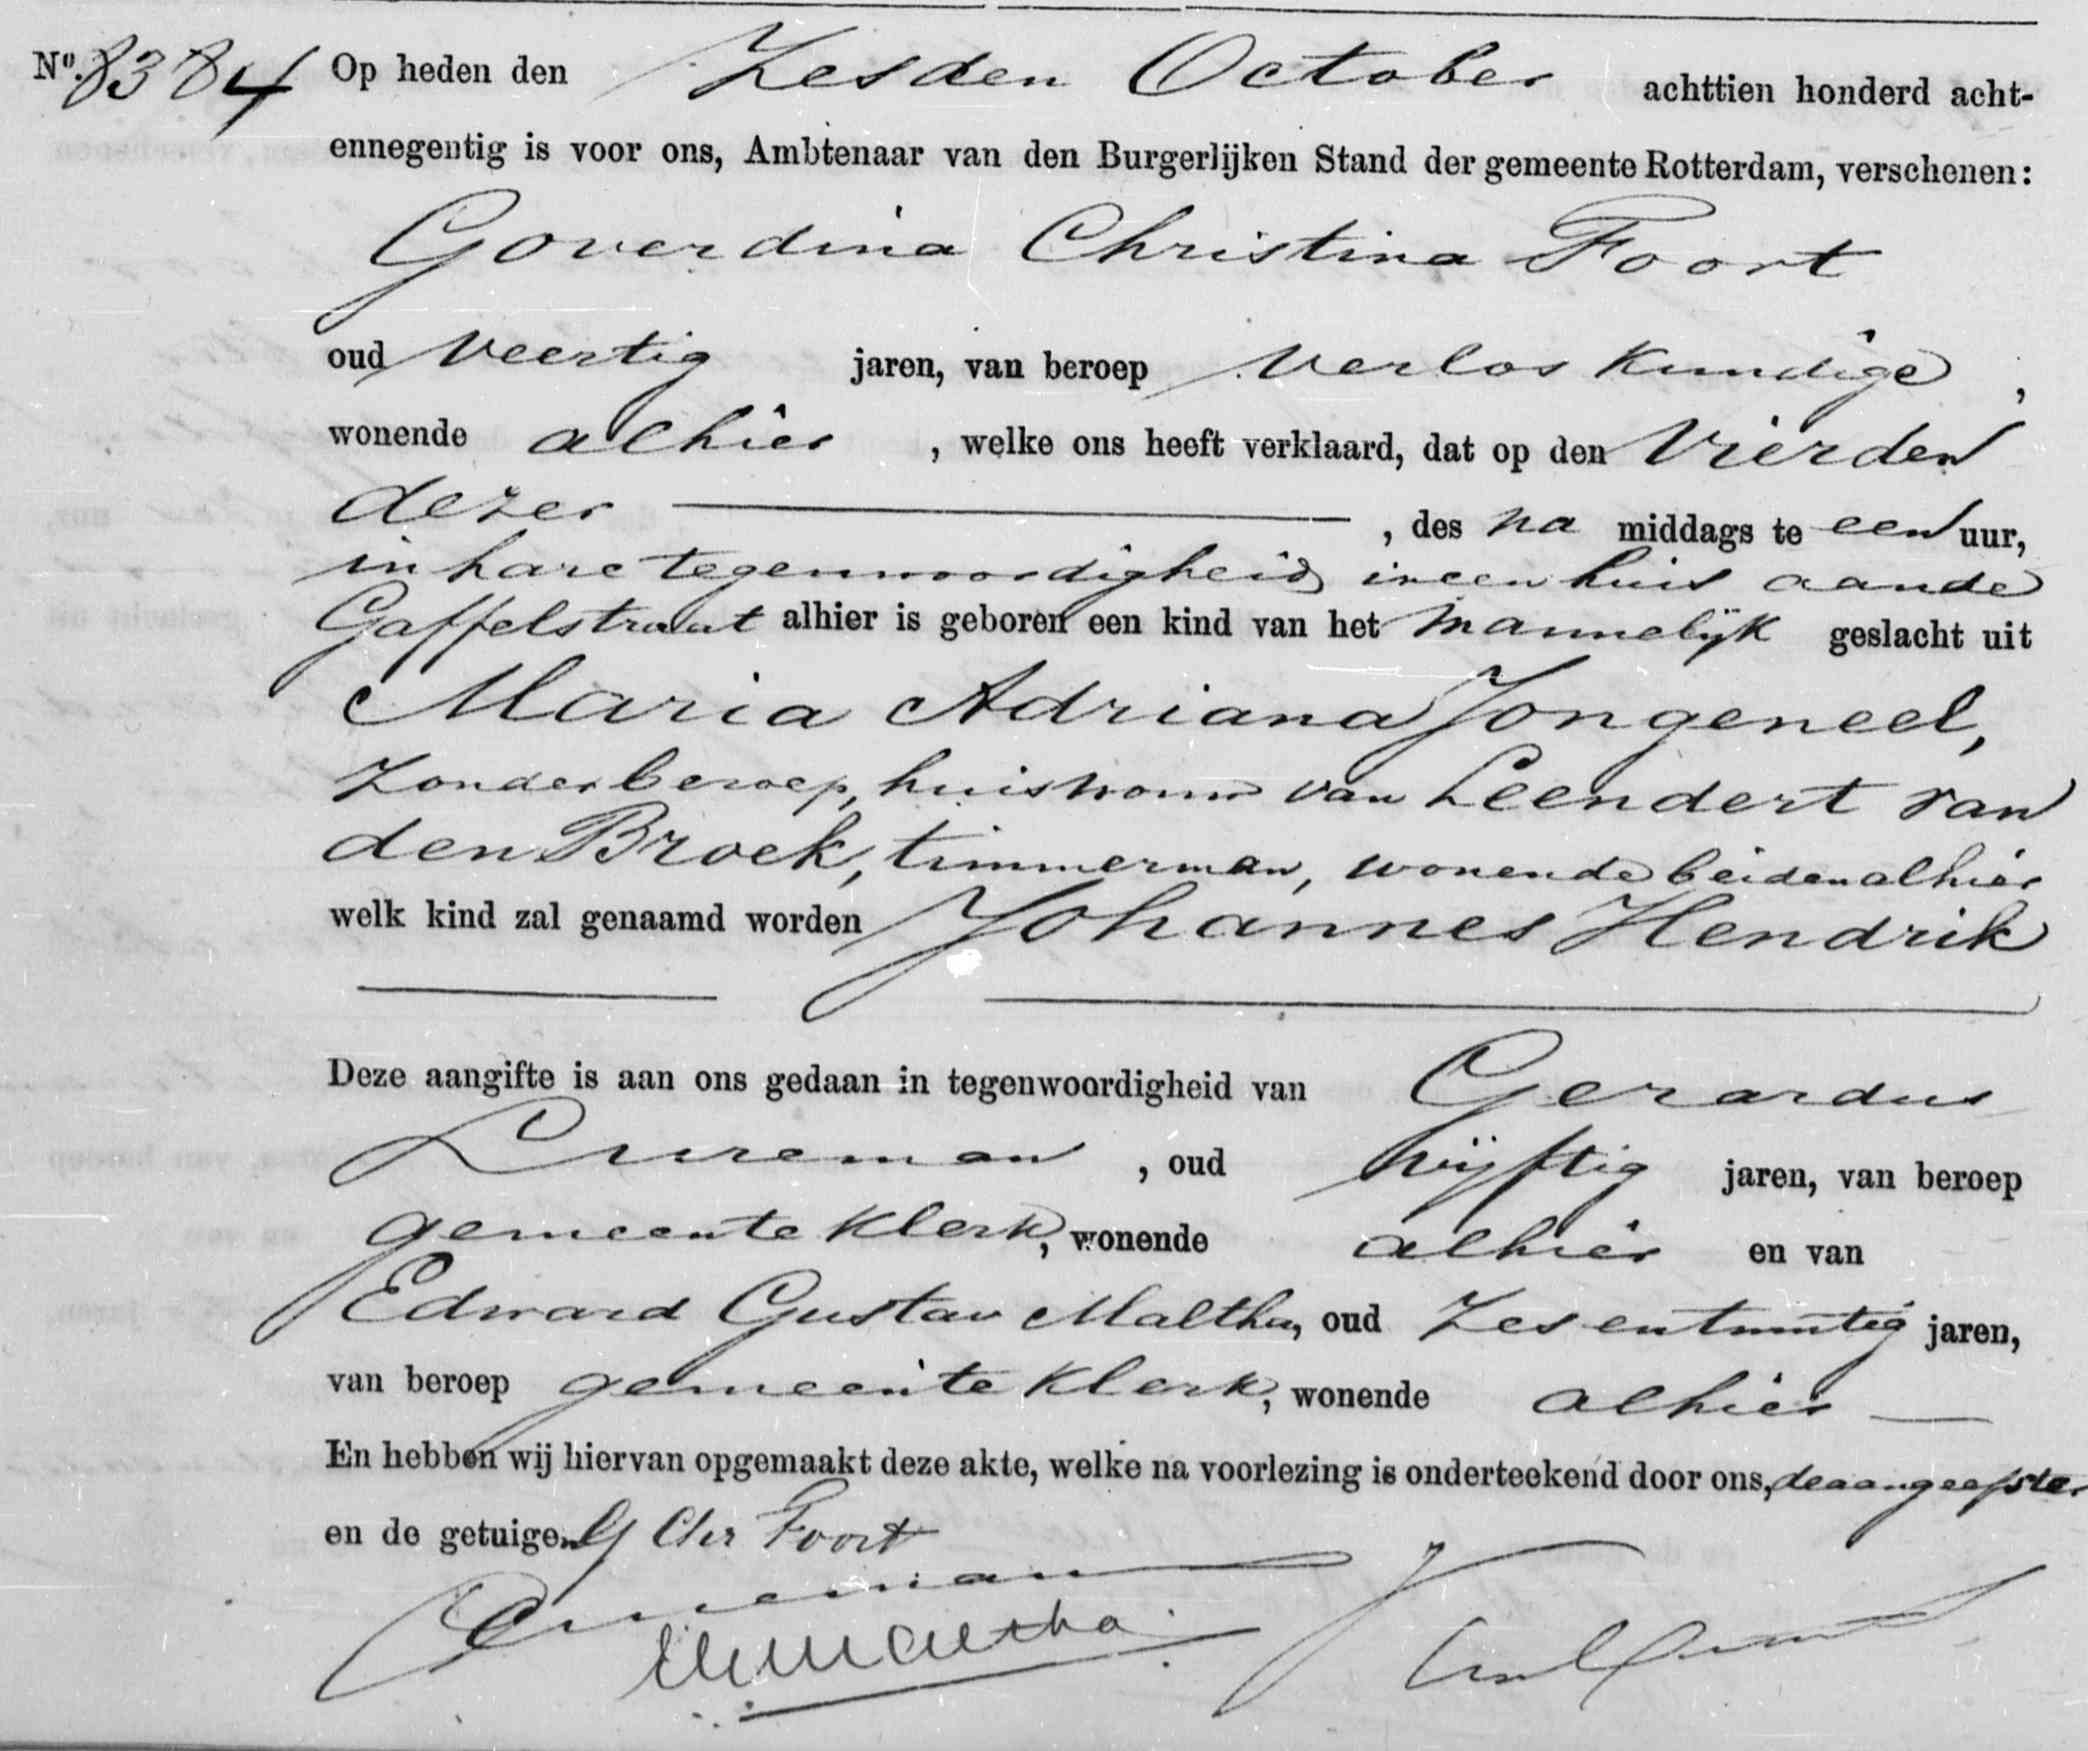 No. 8384 Op heden den Zesden October achttien honderd acht-
ennegentig is voor ons, Ambtenaar van den Burgerlijken Stand der gemeente Rotterdam, verschenen:
Goverdina Christina Foort
oud veertig jaren, van beroep verloskundige,
wonende alhier, welke ons heeft verklaard, dat op den vierden
dezer, des na middags te een uur,
in hare tegenwoordigheid in een huis aan de
Gaffelstraat alhier is geboren een kind van het mannelijk geslacht uit
Maria Adriana Jongeneel,
zonder beroep, huisvrouw van Leendert van
den Broek, timmerman, wonende beiden alhier
welk kind zal genaamd worden Johannes Hendrik
Deze aangifte is aan ons gedaan in tegenwoordigheid van Gerardus
Lureman, oud vijftig jaren, van beroep
gemeenteklerk, wonende alhier en van
Edward Gustav Maltha, oud zesentwintig jaren,
van beroep gemeenteklerk, wonende alhier
En hebben wij hiervan opgemaakt deze akte, welke na voorlezing is onderteekend door ons, de aangeefster
en de getuigen. G Chr Foort
Lureman
EGMaltha